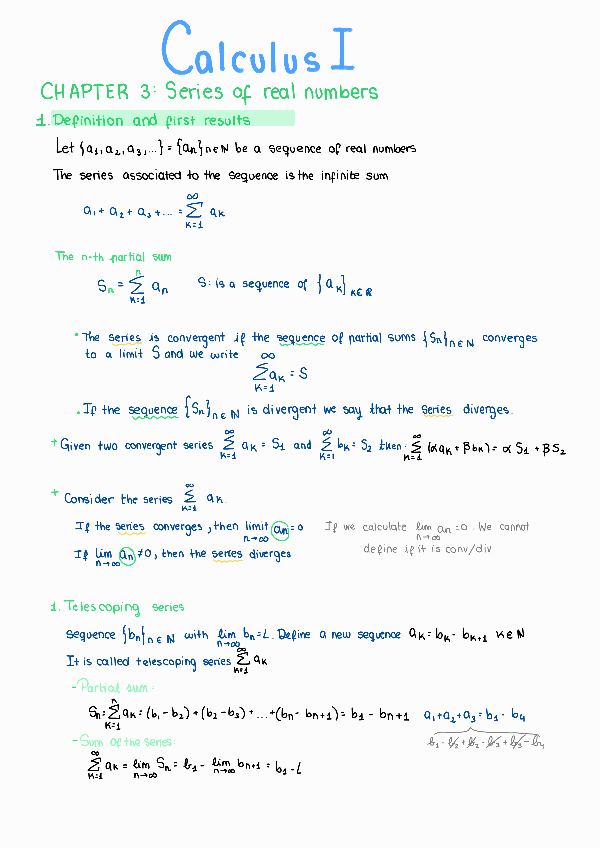 Calculus I
CHAPTER 3: Series of real numbers
1. Definition and first results
Let {a₁, a₂, a₃, ...} = {aₙ}ₙ∈ℕ be a sequence of real numbers
The series associated to the sequence is the infinite sum
a₁ + a₂ + a₃ + ... = ∑_{k=1}^{∞} aₖ
The n-th partial sum
Sₙ = ∑_{k=1}^{n} aₙ S: is a sequence of {aₖ}_{k∈ℝ}
• The series is convergent if the sequence of partial sums {Sₙ}ₙ∈ℕ converges
to a limit S and we write
∑_{k=1}^{∞} aₖ = S
• If the sequence {Sₙ}ₙ∈ℕ is divergent we say that the series diverges.
+ Given two convergent series ∑_{k=1}^{∞} aₖ = S₁ and ∑_{k=1}^{∞} bₖ = S₂ then: ∑_{k=1}^{∞} (αaₖ + βbₖ) = αS₁ + βS₂
+ Consider the series ∑_{k=1}^{∞} aₖ.
If the series converges, then limit_{n→∞} aₙ = 0 If we calculate lim_{n→∞} aₙ = 0. We cannot
If lim_{n→∞} aₙ ≠ 0, then the series diverges define if it is conv/div
1. Telescoping series
Sequence {bₙ}ₙ∈ℕ with lim_{n→∞} bₙ = L. Define a new sequence aₖ = bₖ - bₖ₊₁ k∈ℕ
It is called telescoping series ∑_{k=1}^{∞} aₖ
- Partial sum:
Sₙ = ∑_{k=1}^{n} aₖ = (b₁ - b₂) + (b₂ - b₃) + ... + (bₙ - bₙ₊₁) = b₁ - bₙ₊₁ a₁ + a₂ + a₃ = b₁ - b₄
b₁ - b₂ + b₂ - b₃ + b₃ - b₄
- Sum of the series:
∑_{k=1}^{∞} aₖ = lim_{n→∞} Sₙ = b₁ - lim_{n→∞} bₙ₊₁ = b₁ - L